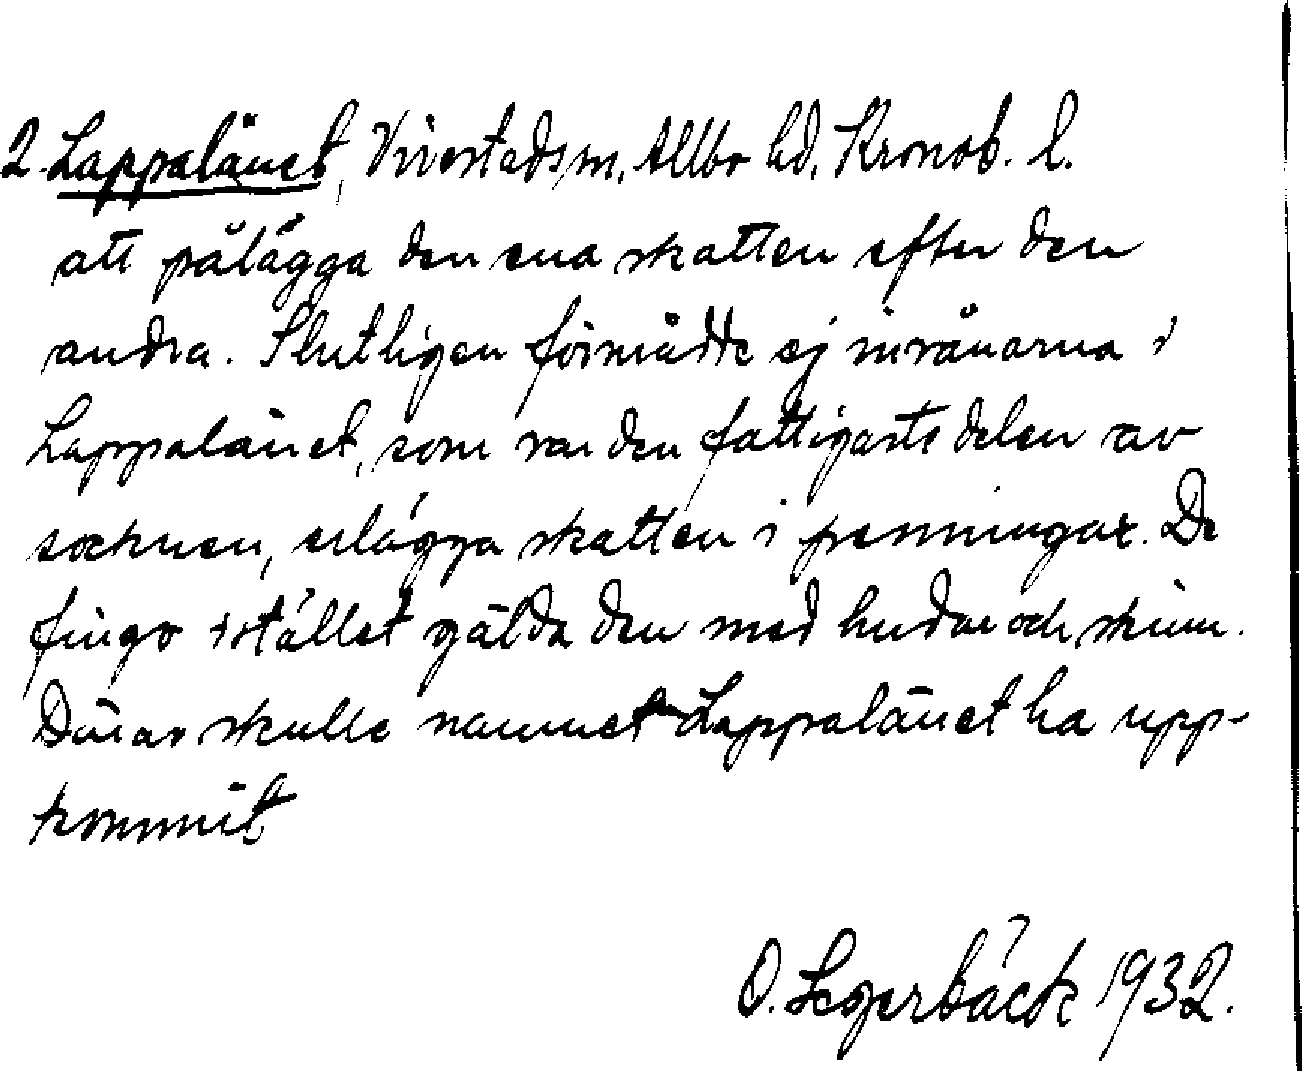 2. Lappalänet, Virestads sn. Allbo hd. Kronob. l.
att pålägga den ena skatten efter den
andra. Slutligen förmådde ej invånarna i
Lappalänet, som var den fattigaste delen av
socknen, erlägga skatten i penningar. De
fingo istället gälda den med hudar och skinn.
Därav skulle namnet Lappalänet ha upp-
kommit
O. Segerbäck 1932.